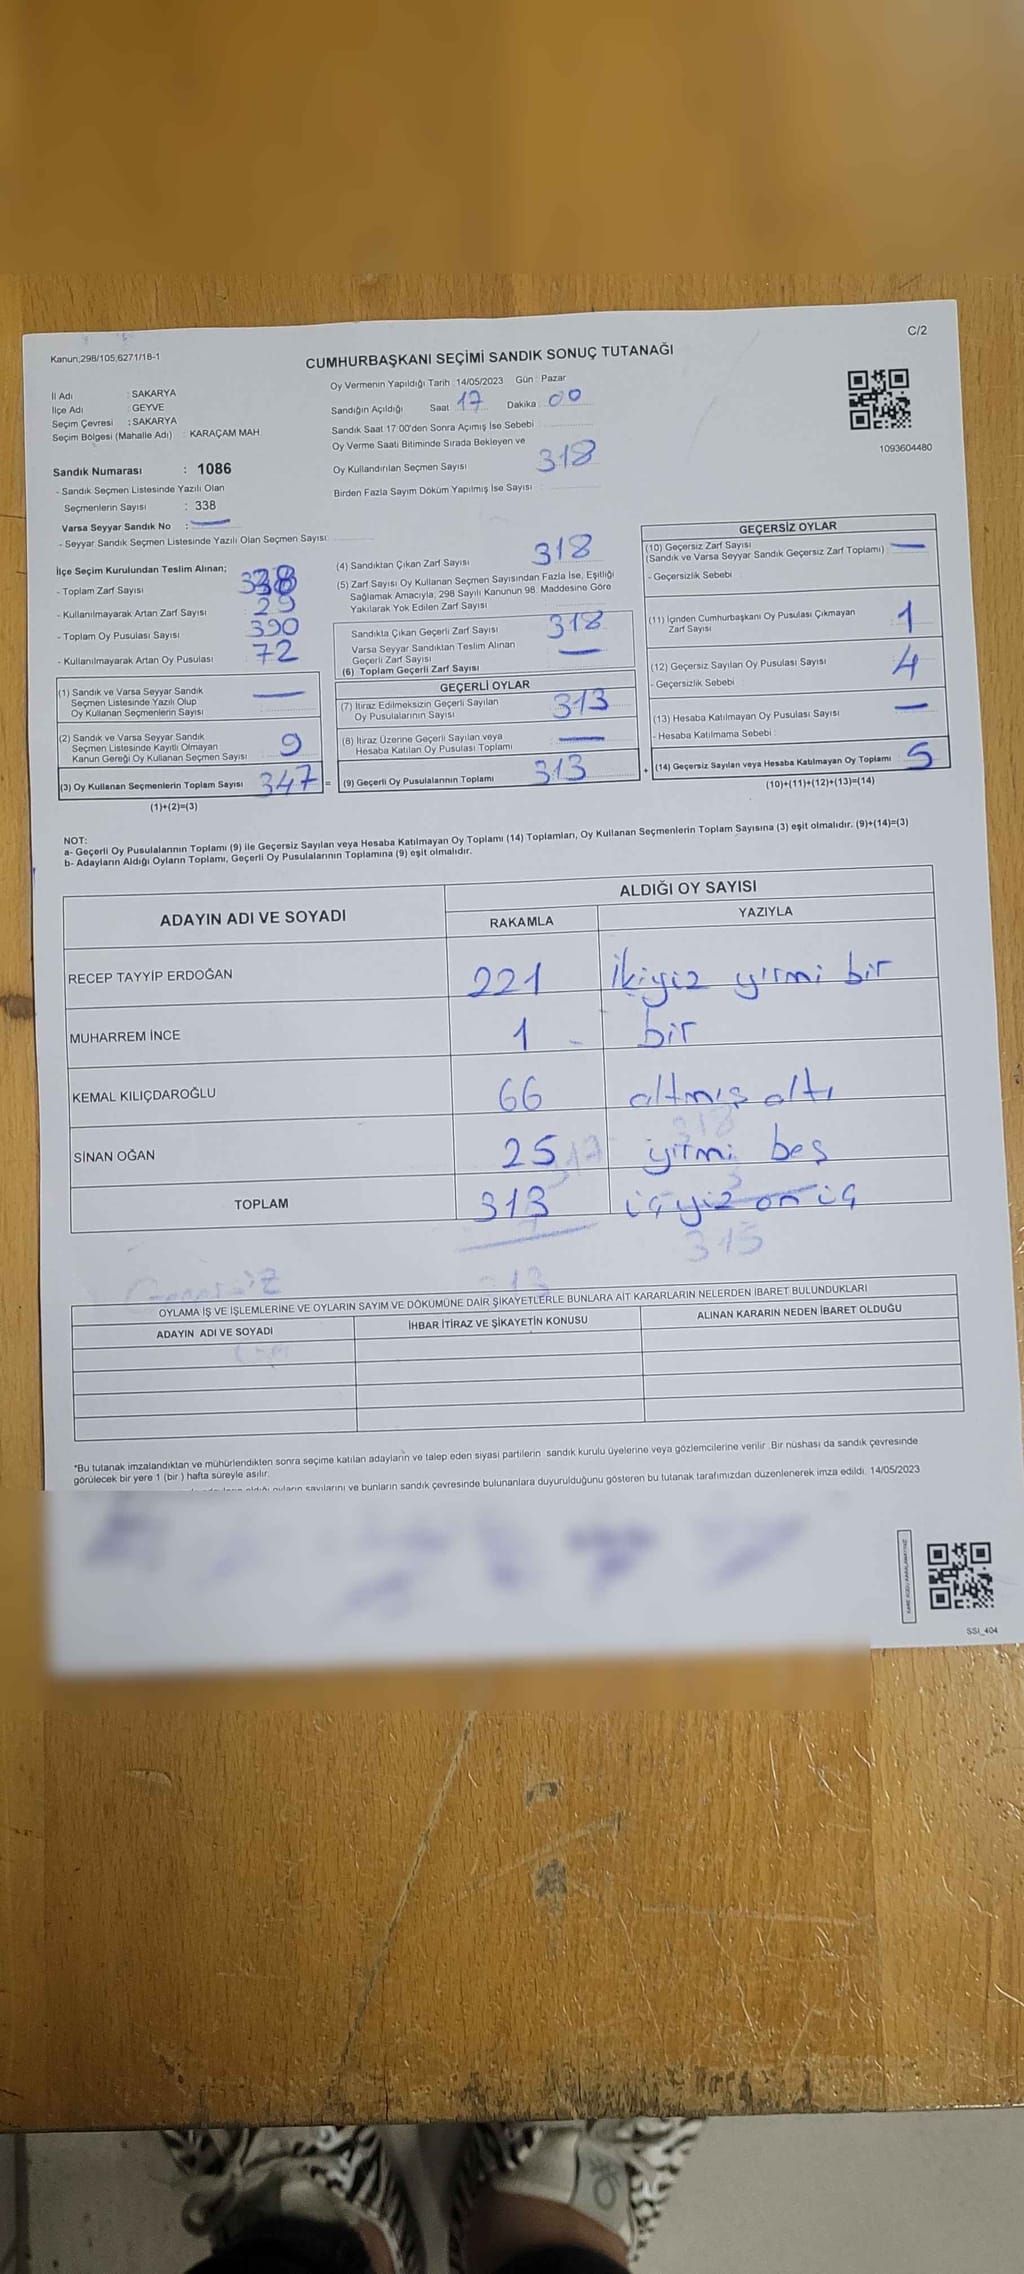 C/2
Kanun;298/105,6271/18-1
CUMHURBAŞKANI SEÇİMİ SANDIK SONUÇ TUTANAĞI
İl Adı : SAKARYA
İlçe Adı : GEYVE
Seçim Çevresi : SAKARYA
Seçim Bölgesi (Mahalle Adı) : KARAÇAM MAH.
Oy Vermenin Yapıldığı Tarih : 14/05/2023 Gün : Pazar
Sandığın Açıldığı Saat 17 Dakika : 00
Sandık Saat 17:00'den Sonra Açımış İse Sebebi
Oy Verme Saati Bitiminde Sırada Bekleyen ve
Oy Kullandırılan Seçmen Sayısı 318
Birden Fazla Sayım Döküm Yapılmış İse Sayısı :
1093604480
Sandık Numarası : 1086
- Sandık Seçmen Listesinde Yazılı Olan
Seçmenlerin Sayısı : 338
Varsa Seyyar Sandık No : —
- Seyyar Sandık Seçmen Listesinde Yazılı Olan Seçmen Sayısı:
İlçe Seçim Kurulundan Teslim Alınan;
- Toplam Zarf Sayısı
- Kullanılmayarak Artan Zarf Sayısı : 29
- Toplam Oy Pusulası Sayısı : 390
- Kullanılmayarak Artan Oy Pusulası : 72
(1) Sandık ve Varsa Seyyar Sandık
Seçmen Listesinde Yazılı Olup
Oy Kullanan Seçmenlerin Sayısı —
(2) Sandık ve Varsa Seyyar Sandık
Seçmen Listesinde Kayıtlı Olmayan
Kanun Gereği Oy Kullanan Seçmen Sayısı 9
(3) Oy Kullanan Seçmenlerin Toplam Sayısı 347 =
(1)+(2)=(3)
(4) Sandıktan Çıkan Zarf Sayısı 318
(5) Zarf Sayısı Oy Kullanan Seçmen Sayısından Fazla İse, Eşitliği
Sağlamak Amacıyla, 298 Sayılı Kanunun 98. Maddesine Göre
Yakılarak Yok Edilen Zarf Sayısı
Sandıkta Çıkan Geçerli Zarf Sayısı 318
Varsa Seyyar Sandıktan Teslim Alınan
Geçerli Zarf Sayısı —
(6) Toplam Geçerli Zarf Sayısı
GEÇERLİ OYLAR
(7) İtiraz Edilmeksizin Geçerli Sayılan
Oy Pusulalarının Sayısı 313
(8) İtiraz Üzerine Geçerli Sayılan veya
Hesaba Katılan Oy Pusulası Toplamı —
(9) Geçerli Oy Pusulalarının Toplamı 313 +
GEÇERSİZ OYLAR
(10) Geçersiz Zarf Sayısı
(Sandık ve Varsa Seyyar Sandık Geçersiz Zarf Toplamı) —
- Geçersizlik Sebebi
(11) İçinden Cumhurbaşkanı Oy Pusulası Çıkmayan
Zarf Sayısı 1
(12) Geçersiz Sayılan Oy Pusulası Sayısı 4
- Geçersizlik Sebebi
(13) Hesaba Katılmayan Oy Pusulası Sayısı —
- Hesaba Katılmama Sebebi :
(14) Geçersiz Sayılan veya Hesaba Katılmayan Oy Toplamı 5
(10)+(11)+(12)+(13)=(14)
NOT:
a- Geçerli Oy Pusulalarının Toplamı (9) ile Geçersiz Sayılan veya Hesaba Katılmayan Oy Toplamı (14) Toplamları, Oy Kullanan Seçmenlerin Toplam Sayısına (3) eşit olmalıdır. (9)+(14)=(3)
b- Adayların Aldığı Oyların Toplamı, Geçerli Oy Pusulalarının Toplamına (9) eşit olmalıdır.
ADAYIN ADI VE SOYADI
ALDIĞI OY SAYISI
RAKAMLA YAZIYLA
RECEP TAYYİP ERDOĞAN 221 ikiyiz yirmi bir
MUHARREM İNCE 1 bir
KEMAL KILIÇDAROĞLU 66 altmış altı
318
SİNAN OĞAN 25 yirmi beş
TOPLAM 313 içyiz on iç
315
313
OYLAMA İŞ VE İŞLEMLERİNE VE OYLARIN SAYIM VE DÖKÜMÜNE DAİR ŞİKAYETLERLE BUNLARA AİT KARARLARIN NELERDEN İBARET BULUNDUKLARI
ADAYIN ADI VE SOYADI İHBAR İTİRAZ VE ŞİKAYETİN KONUSU ALINAN KARARIN NEDEN İBARET OLDUĞU
*Bu tutanak imzalandıktan ve mühürlendikten sonra seçime katılan adayların ve talep eden siyasi partilerin sandık kurulu üyelerine veya gözlemcilerine verilir. Bir nüshası da sandık çevresinde
görülecek bir yere 1 (bir ) hafta süreyle asılır.
oyların sayılarını ve bunların sandık çevresinde bulunanlara duyurulduğunu gösteren bu tutanak tarafımızdan düzenlenerek imza edildi. 14/05/2023
SSI_404